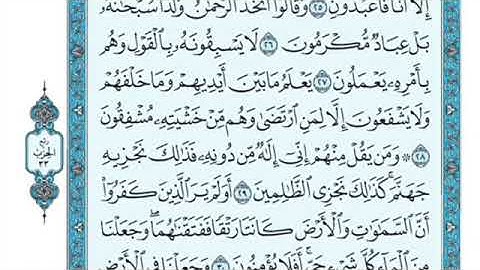 إِلَّا أَنَا۠ فَٱعۡبُدُونِ ٢٥ وَقَالُواْ ٱتَّخَذَ ٱلرَّحۡمَٰنُ وَلَدٗاۗ سُبۡحَٰنَهُۥۚ
بَلۡ عِبَادٞ مُّكۡرَمُونَ ٢٦ لَا يَسۡبِقُونَهُۥ بِٱلۡقَوۡلِ وَهُم
بِأَمۡرِهِۦ يَعۡمَلُونَ ٢٧ يَعۡلَمُ مَا بَيۡنَ أَيۡدِيهِمۡ وَمَا خَلۡفَهُمۡ
وَلَا يَشۡفَعُونَ إِلَّا لِمَنِ ٱرۡتَضَىٰ وَهُم مِّنۡ خَشۡيَتِهِۦ مُشۡفِقُونَ
٢٨ ۞ وَمَن يَقُلۡ مِنۡهُمۡ إِنِّيٓ إِلَٰهٞ مِّن دُونِهِۦ فَذَٰلِكَ نَجۡزِيهِ
جَهَنَّمَۚ كَذَٰلِكَ نَجۡزِي ٱلظَّٰلِمِينَ ٢٩ أَوَلَمۡ يَرَ ٱلَّذِينَ كَفَرُوٓاْ
أَنَّ ٱلسَّمَٰوَٰتِ وَٱلۡأَرۡضَ كَانَتَا رَتۡقٗا فَفَتَقۡنَٰهُمَاۖ وَجَعَلۡنَا
مِنَ ٱلۡمَآءِ كُلَّ شَيۡءٍ حَيٍّۚ أَفَلَا يُؤۡمِنُونَ ٣٠ وَجَعَلۡنَا فِي ٱلۡأَرۡضِ
ربع
الحزب
٣٣